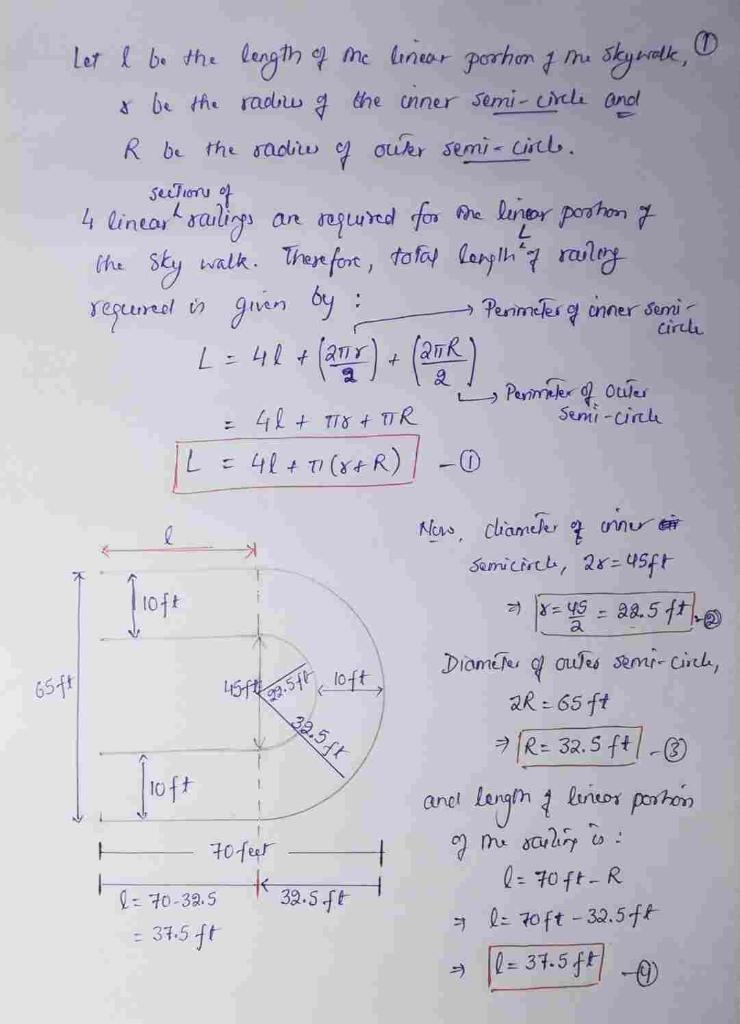 ①
Let l be the length of the linear portion of the skywalk,
r be the radius of the inner semi-circle and
R be the radius of outer semi-circle.
4 linear sections of railings are required for the linear portion of
the sky walk. Therefore, total length L of railing
required is given by :
L = 4l + (2πr/2) + (2πR/2)
→ Perimeter of inner semi-circle
→ Perimeter of outer semi-circle
= 4l + πr + πR
L = 4l + π(r+R) - ①
Now, diameter of inner
semicircle, 2r = 45ft
⇒ r = 45/2 = 22.5 ft - ②
Diameter of outer semi-circle,
2R = 65 ft
⇒ R = 32.5 ft - ③
and length of linear portion
of the railing is :
l = 70 ft - R
⇒ l = 70 ft - 32.5 ft
⇒ l = 37.5 ft - ④
l
10ft
65ft
45ft
22.5ft
10ft
32.5ft
10ft
70 feet
l = 70-32.5
32.5 ft
= 37.5 ft